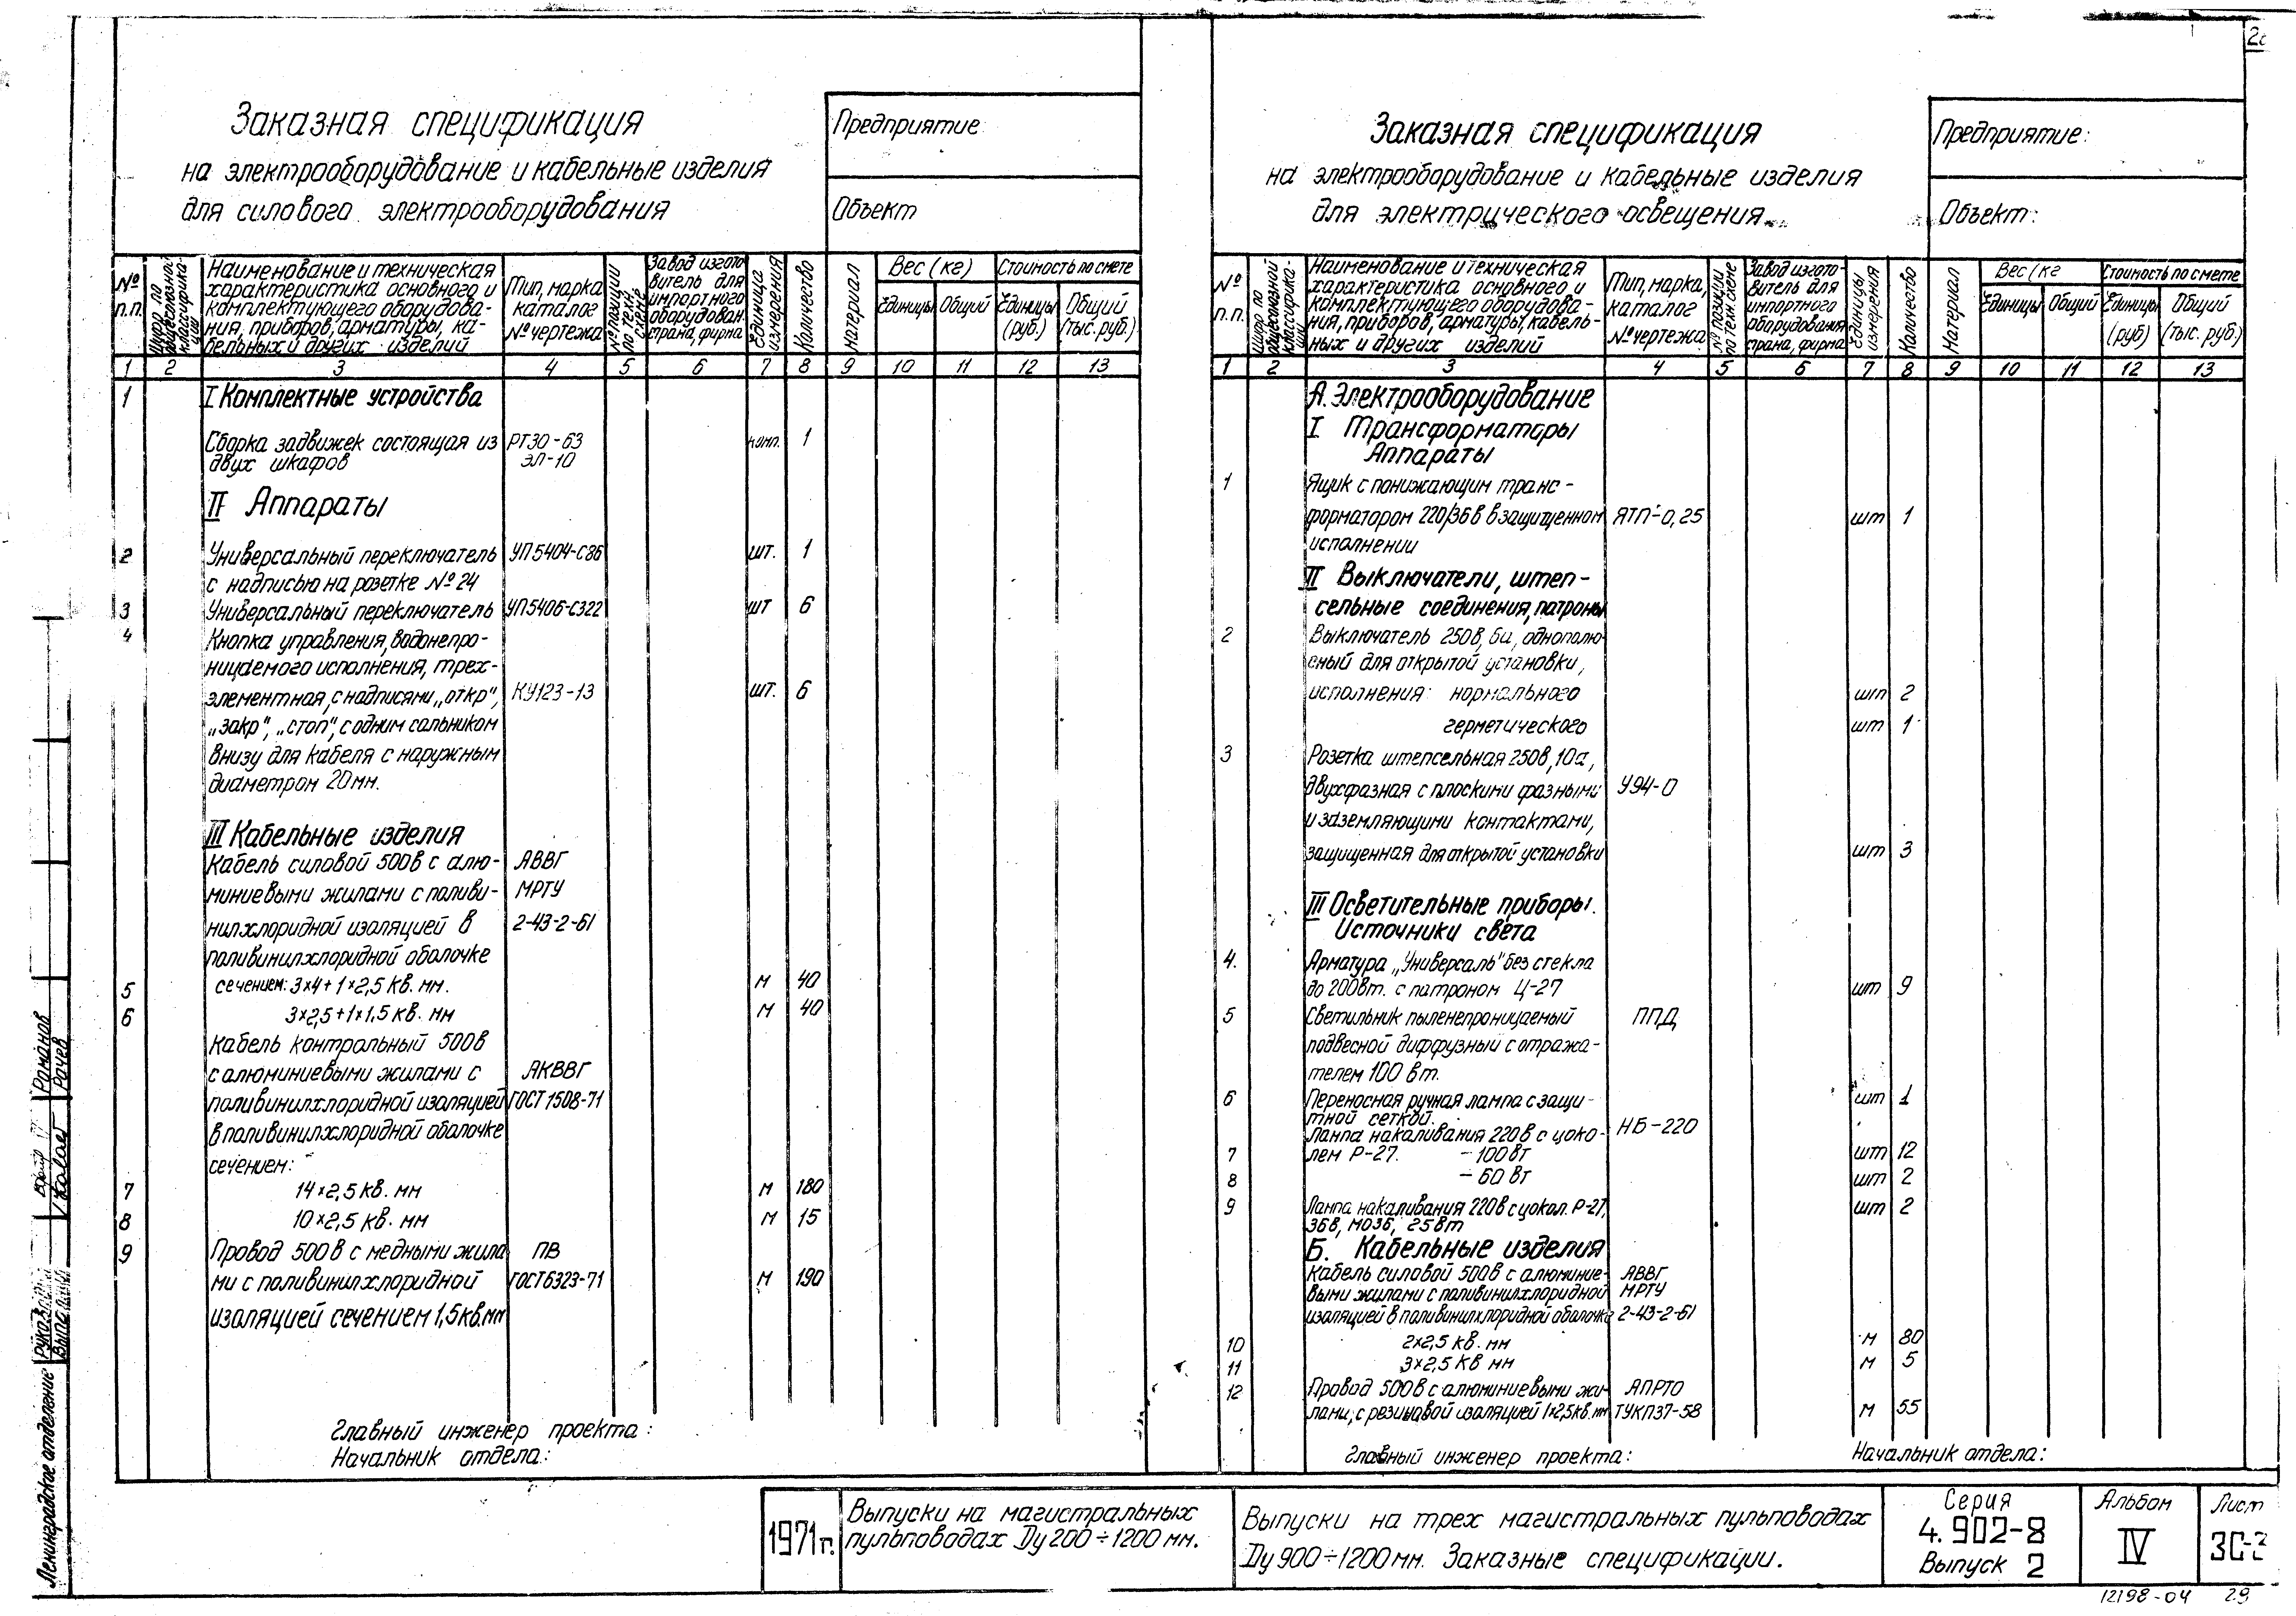 Заказная спецификация
на электрооборудование и кабельные изделия
для силового электрооборудования
Предприятие
Объект
№ п.п.
Шифр по общесоюзной классификации
Наименование и техническая
характеристика основного и
комплектующего оборудова-
ния, приборов, арматуры, ка-
бельных и других изделий
Тип, марка
каталог
№ чертежа
№ позиции по техн. схеме
Завод изгото
витель для
импортного
оборудован.
страна, фирма
Единица измерения
Количество
материал
Вес (кг)
Единицы
Общий
Стоимость по смете
Единицы (руб.)
Общий (тыс. руб.)
1 2 3 4 5 6 7 8 9 10 11 12 13
1 I Комплектные устройства
Сборка задвижек состоящая из РТ30-63 комп. 1
двух шкафов ЭЛ-10
II Аппараты
2 Универсальный переключатель УП5404-С86 шт. 1
с надписью на розетке №24
3 Универсальный переключатель УП5406-С322 шт 6
4 Кнопка управления, водонепро-
ницаемого исполнения, трех-
элементная, с надписями „откр", КУ123-13 шт. 6
„закр", „стоп", с одним сальником
внизу для кабеля с наружным
диаметром 20мм.
III Кабельные изделия
Кабель силовой 500в с алю- АВВГ
миниевыми жилами с поливи- МРТУ
нилхлоридной изоляцией в 2-43-2-61
поливинилхлоридной оболочке
5 сечением: 3×4+1×2,5 кв. мм. м 40
6 3×2,5+1×1,5 кв. мм м 40
Кабель контрольный 500в
с алюминиевыми жилами с АКВВГ
поливинилхлоридной изоляцией ГОСТ 1508-71
в поливинилхлоридной оболочке
сечением:
7 14×2,5 кв. мм м 180
8 10×2,5 кв. мм м 15
9 Провод 500в с медными жила ПВ
ми с поливинилхлоридной ГОСТ6323-71 м 190
изоляцией сечением 1,5кв.мм
Главный инженер проекта:
Начальник отдела:
Заказная спецификация
на электрооборудование и кабельные изделия
для электрического освещения
Предприятие:
Объект:
№ п.п.
Шифр по общесоюзной классификации
Наименование и техническая
характеристика основного и
комплектующего оборудова-
ния, приборов, арматуры, кабель-
ных и других изделий
Тип, марка,
каталог
№ чертежа
№ позиции по техн. схеме
Завод изгото-
витель для
импортного
оборудования
страна, фирма
Единицы измерения
Количество
Материал
Вес (кг
Единицы
Общий
Стоимость по смете
Единицы (руб)
Общий (тыс. руб.)
1 2 3 4 5 6 7 8 9 10 11 12 13
А. Электрооборудование
I Трансформаторы
Аппараты
1 Ящик с понижающим транс-
форматором 220/36в в защищенном ЯТП-0,25 шт 1
исполнении
II Выключатели, штеп-
сельные соединения, патроны
2 Выключатель 250в, 6а, однополю-
сный для открытой установки,
исполнения: нормального шт 2
герметического шт 1
3 Розетка штепсельная 250в, 10а,
двухфазная с плоскими фазными У94-О
и заземляющими контактами,
защищенная для открытой установки шт 3
III Осветительные приборы.
Источники света
4. Арматура „Универсаль" без стекла
до 200вт. с патроном Ц-27 шт 9
5 Светильник пыленепроницаемый ППД
подвесной диффузный с отража-
телем 100 вт.
6 Переносная ручная лампа с защи- шт 1
тной сеткой.
Лампа накаливания 220в с цоко- НБ-220
7 лем Р-27. - 100вт шт 12
8 - 60 вт шт 2
9 Лампа накаливания 220в с цокол. Р-27, шт 2
36в, МО36, 25вт
Б. Кабельные изделия
Кабель силовой 500в с алюминие- АВВГ
выми жилами с поливинилхлоридной МРТУ
изоляцией в поливинилхлоридной оболочке 2-43-2-61
10 2×2,5 кв. мм м 80
11 3×2,5 кв мм м 5
12 Провод 500в с алюминиевыми жи- АПРТО
лами, с резиновой изоляцией 1×2,5кв. мм ТУКП37-58 м 55
Главный инженер проекта: Начальник отдела:
Ленинградское отделение
Романов
Рачев
1971г.
Выпуски на магистральных
пульповодах Ду 200÷1200 мм.
Выпуски на трех магистральных пульповодах
Ду 900÷1200мм. Заказные спецификации.
Серия
4.902-8
Выпуск 2
Альбом
IV
Лист
12198-04 29